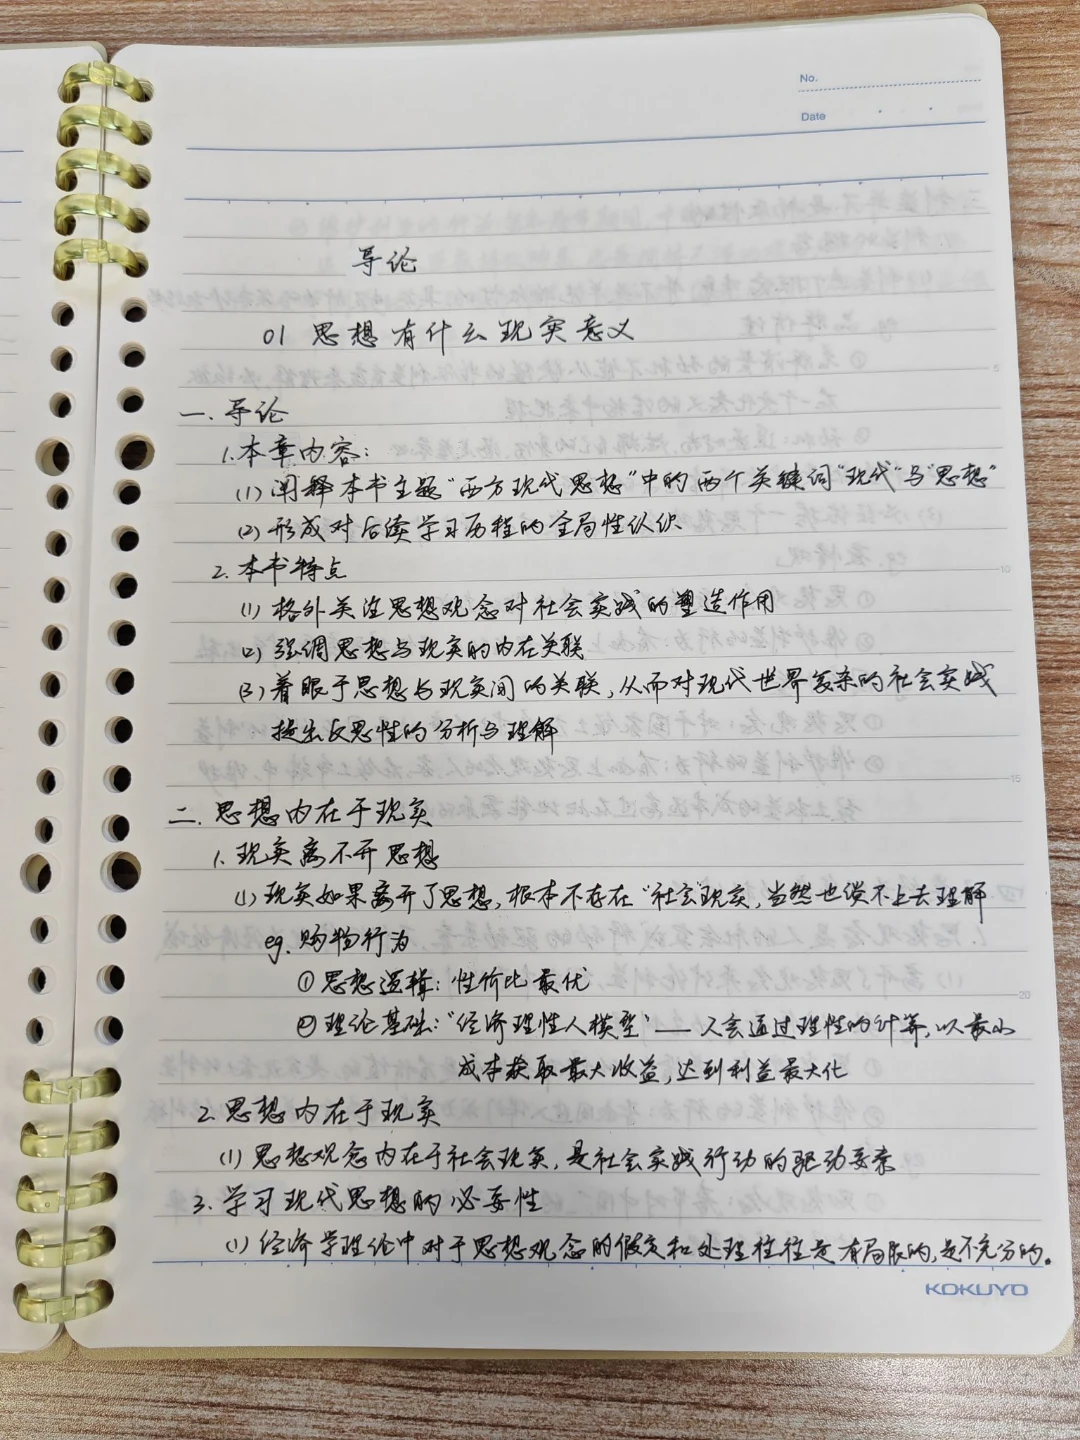 No.
Date
导论
01 思想有什么现实意义
一. 导论
1. 本章内容:
(1) 阐释本书主题"西方现代思想"中的两个关键词"现代"与"思想"
(2) 形成对后续学习历程的全局性认识
2. 本书特点
(1) 格外关注思想观念对社会实践的塑造作用
(2) 强调思想与现实的内在关联
(3) 着眼于思想与现实间的关联, 从而对现代世界复杂的社会实践
提出反思性的分析与理解
二. 思想内在于现实
1. 现实离不开思想
(1) 现实如果离开了思想, 根本不存在"社会"现实, 当然也谈不上去理解
eg. 购物行为
① 思想逻辑: 性价比最优
② 理论基础: "经济理性人模型" —— 人会通过理性的计算, 以最小
成本获取最大收益, 达到利益最大化
2. 思想内在于现实
(1) 思想观念内在于社会现实, 是社会实践行动的驱动要素
3. 学习现代思想的必要性
(1) 经济学理论中对于思想观念的假定和处理往往是有局限的, 是不充分的。
KOKUYO